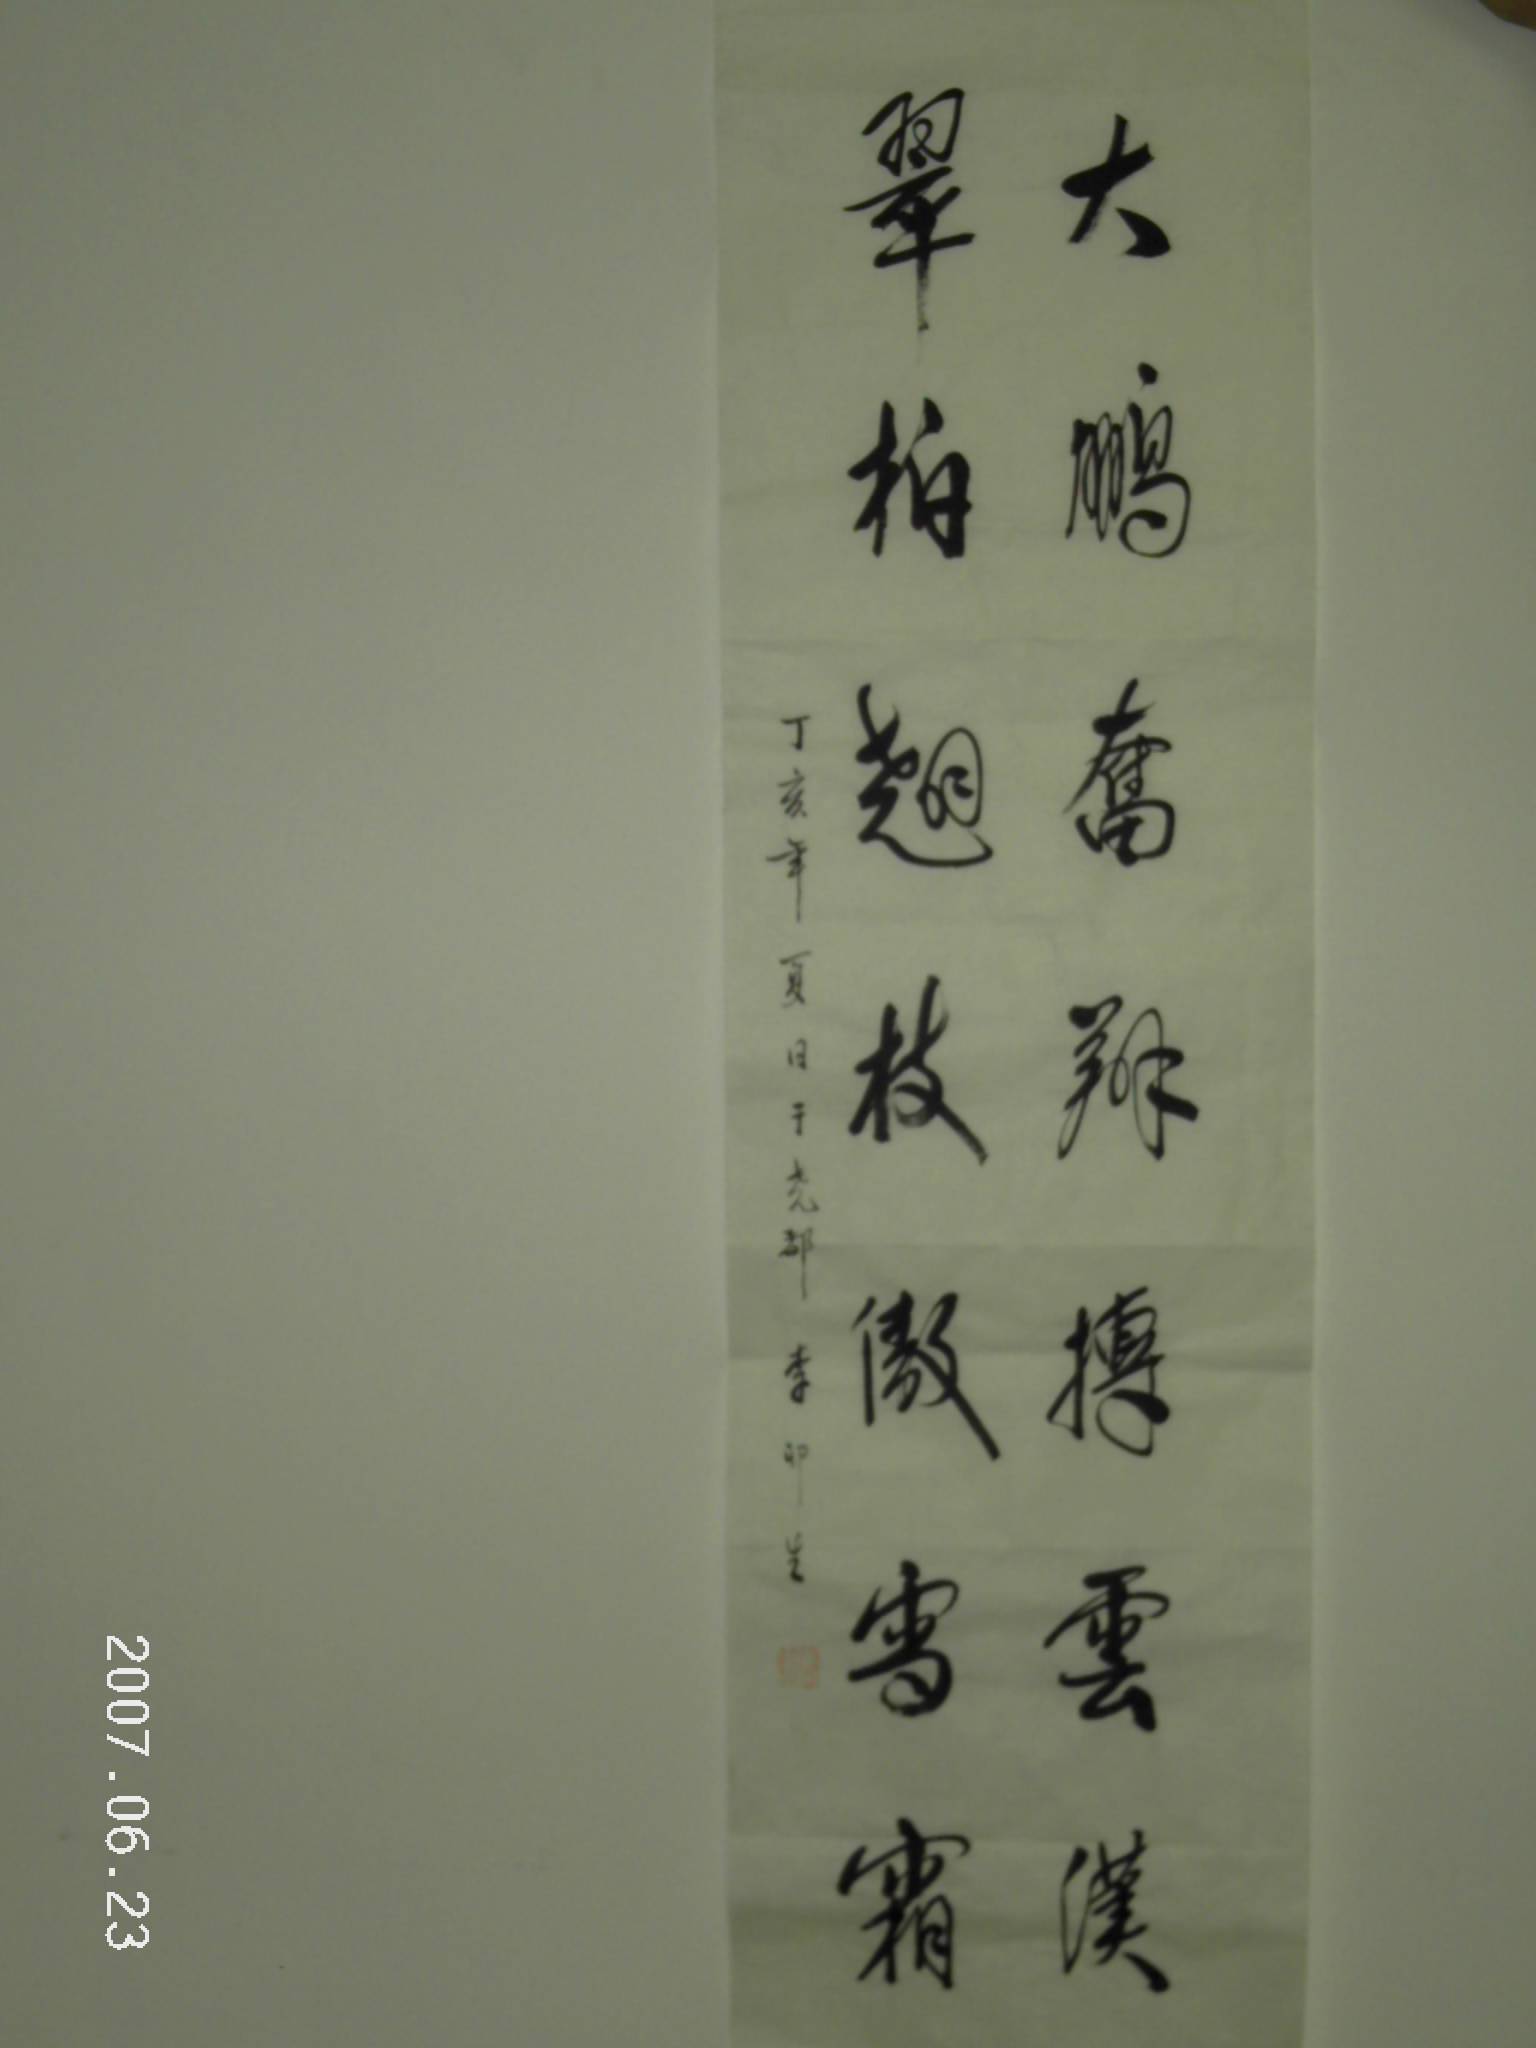 大鵬奮翔搏雲漢
翠柏翹枝傲雪霜
丁亥年夏日于尧都李卯生
2007.06.23